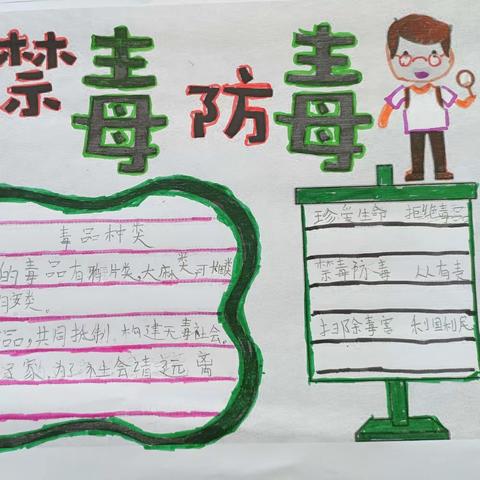 禁毒防毒
毒品种类
的毒品有鸦片类、大麻类、可
类。
品,共同抵制 构建无毒社会。
家,为了社会请远离
珍爱生命 拒绝毒品
禁毒防毒 人人有责
扫除毒害 利国利民